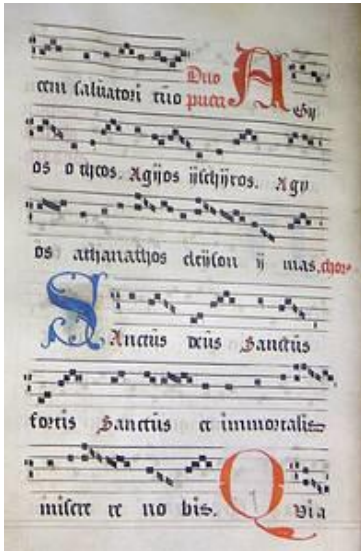 cem saluatori tuo Duo pueri A
gy
os o theos. Agijos ijschijros. Agy
os athanathos eleijson ij mas. chor
Sanctus deus Sanctus
fortis Sanctus et immortalis
misere re no bis. Quia